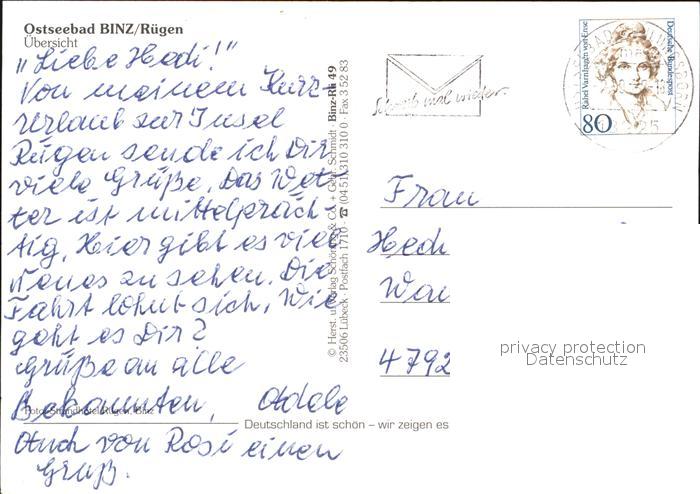 Ostseebad BINZ/Rügen
Übersicht
"Liebe Hedi!"
Von meinem Kurz-
urlaub zur Insel
Rügen sende ich Dir
viele Grüße. Das Wet-
ter ist mittelpräch-
tig, Hier gibt es viel
Neues zu sehen. Die
Fahrt lohnt sich, Wie
geht es Dir?
Grüße an alle
Bekannten, Adele
Auch von Rosi einen
Gruß.
Foto: Strandhotel Rügen, Binz
Deutschland ist schön – wir zeigen es
© Herst. u. Verlag Schöning & Co. + Gebr. Schmidt · Binz-Rü 49
23506 Lübeck · Postfach 1710 · ☎ (04 51) 310 310 0 · Fax 3 52 83
Schreib mal wieder
Rahel Varnhagen von Ense
Deutsche Bundespost
80
Frau
Hedi
4792
privacy protection
Datenschutz